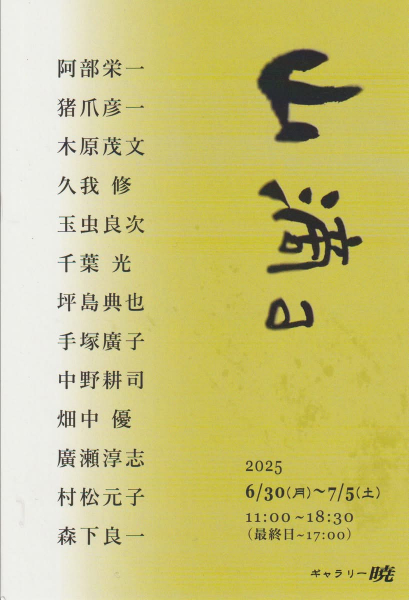 山滴日
阿部栄一
猪爪彦一
木原茂文
久我 修
玉虫良次
千葉 光
坪島典也
手塚廣子
中野耕司
畑中 優
廣瀬淳志
村松元子
森下良一
2025
6/30(月)~7/5(土)
11:00~18:30
(最終日~17:00)
ギャラリー暁